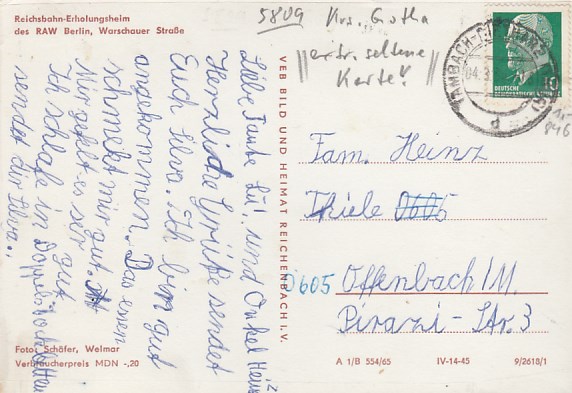 Reichsbahn-Erholungsheim
des RAW Berlin, Warschauer Straße
5809 Krs. Gotha
"extr. seltene
Karte!"
TAMBACH-DIETHARZ
04.3
d
DEUTSCHE
DEMOKRATISCHE
10
846
Liebe Tante Lu!, und Onkel Heinz
Herzliche Grüße sendet
Euch Ilva. Ich bin gut
angekommen. Das essen
schmekt mir gut.
Mir gefelt es ser gut
Ich schlafe in Doppelstockbetten
sendet dir Ilva.
VEB BILD UND HEIMAT REICHENBACH I. V.
Fam. Heinz
Thiele 0605
0605 Offenbach/M.
Pirazzi-Str. 3
Foto: Schöfer, Weimar
Verbraucherpreis MDN -,20
A 1/B 554/65 IV-14-45 9/2618/1